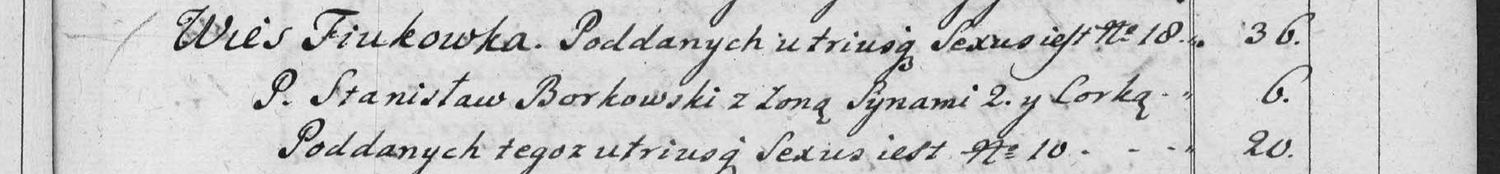 Wieś Fiukowka. Poddanych utriusq Sexus iest No 18. 36.
P. Stanisław Borkowski z Żoną Synami 2. y Corką - 6.
Poddanych tegoz utriusq Sexus iest No 10 . - - - 20.